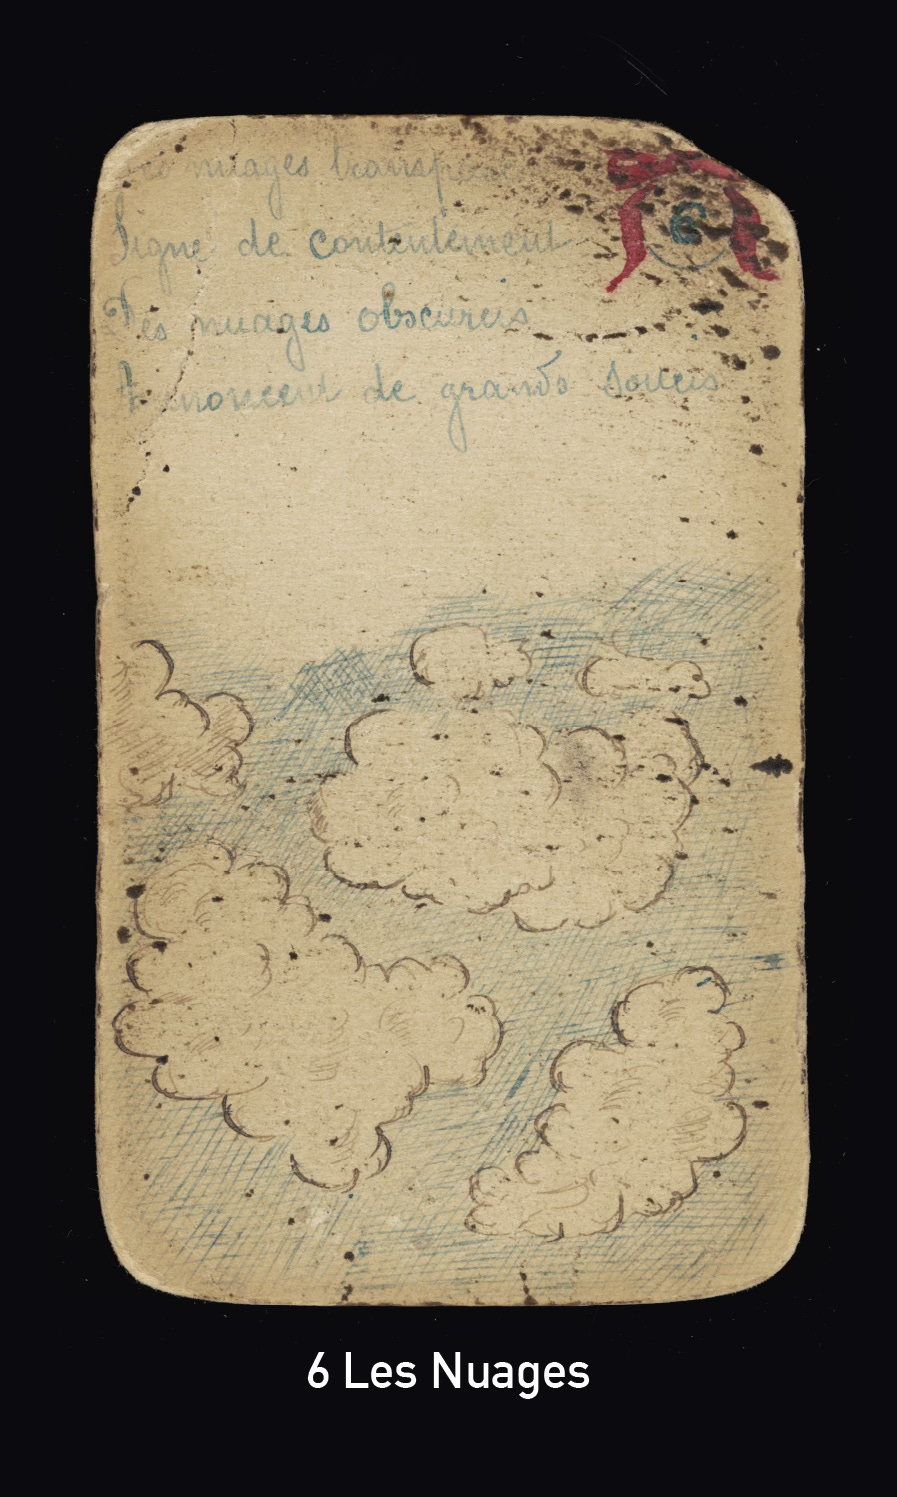 nuages
Signe de contentement
6
Des nuages obscurcis
Annoncent de grands Soucis
6 Les Nuages